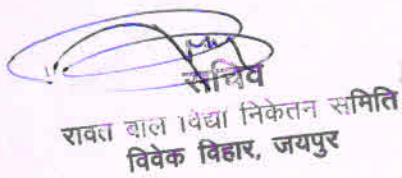 सचिव
रावत बाल विद्या निकेतन समिति
विवेक विहार, जयपुर